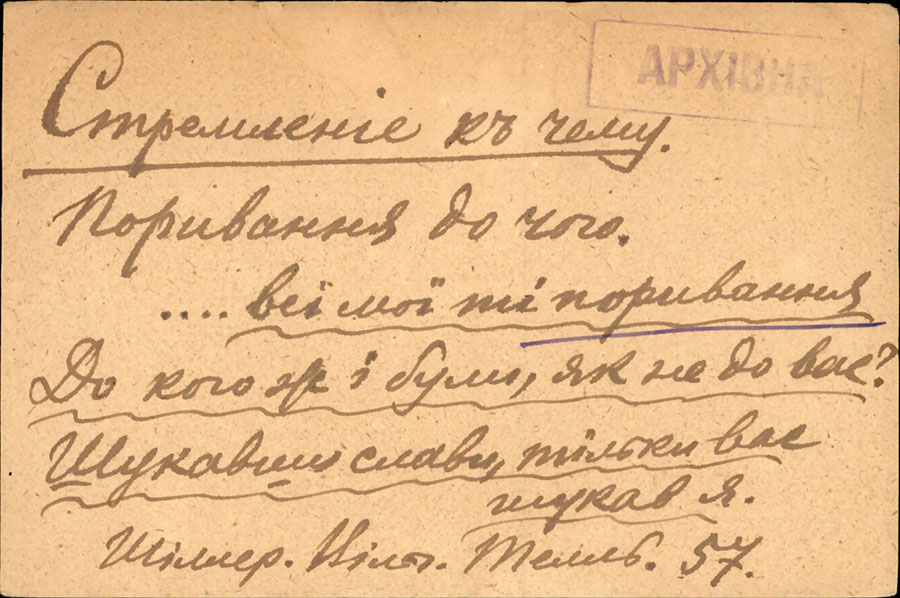 АРХІВНА
Стремленіе къ чему.
Поривання до чого.
.... всі мої ті поривання
До кого ж і були, як не до вас?
Шукавши слави, тільки вас
шукав я.
Шіллер. Вільг. Телль. 57.